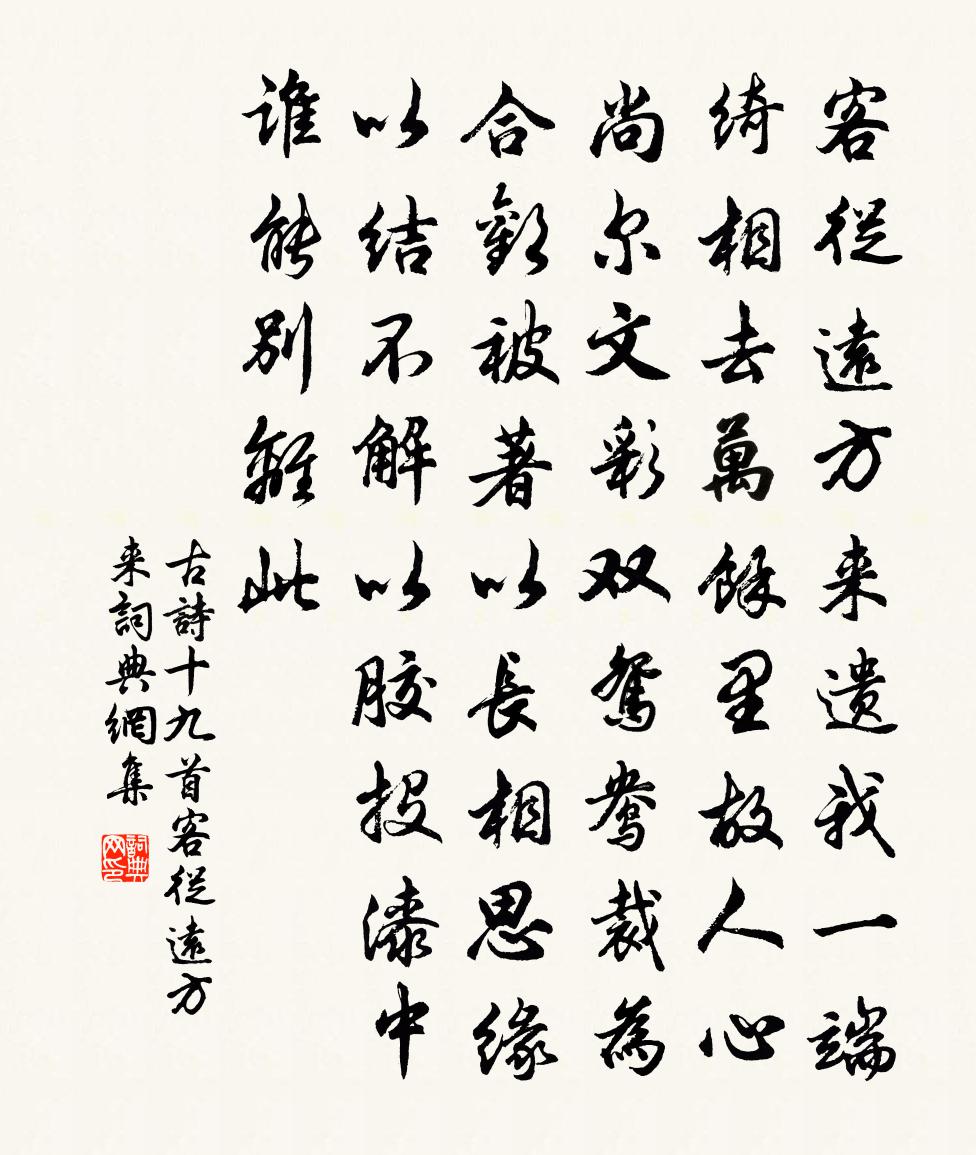 客從遠方来遺我一端
綺相去萬餘里故人心
尚尔文彩双鴛鴦裁為
合歡被著以長相思緣
以結不解以胶投漆中
谁能别離此
古詩十九首客從遠方
来詞典網集
詞典
网印